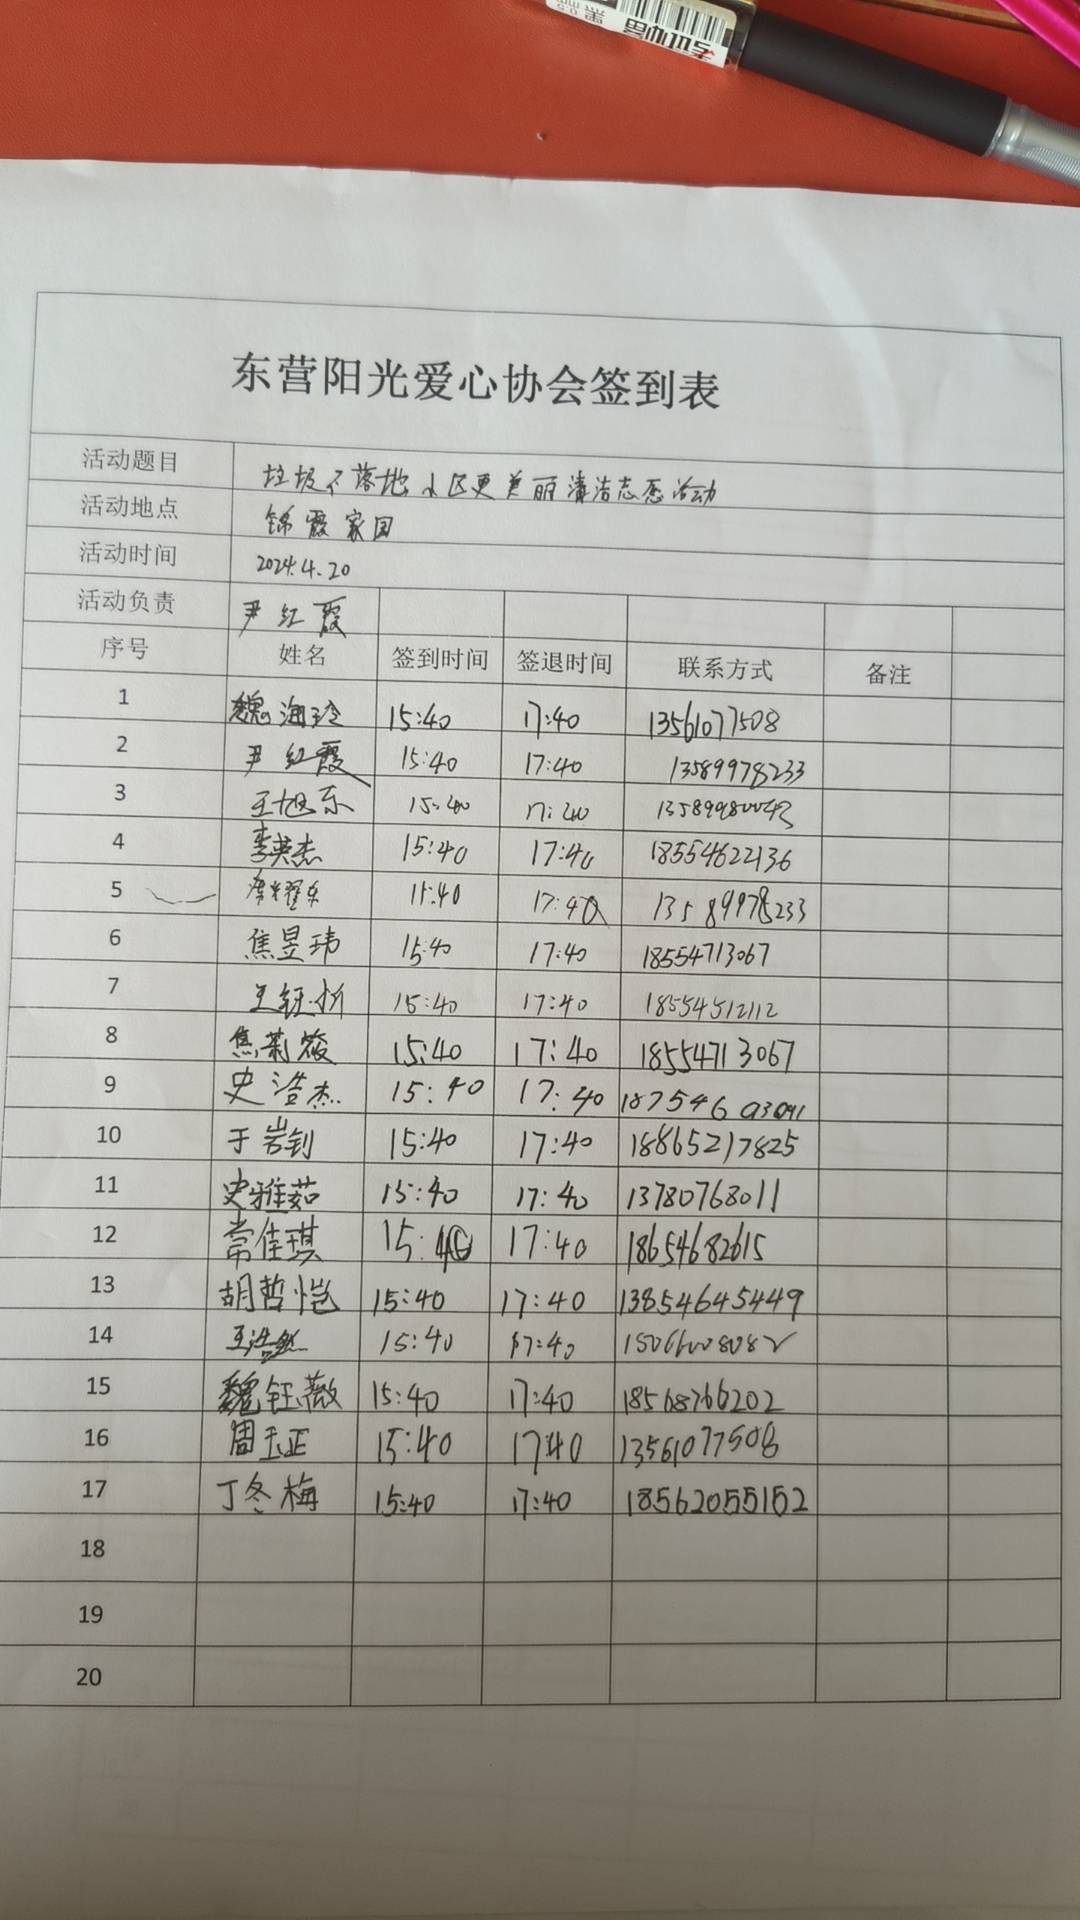 黑 0.5
东营阳光爱心协会签到表
活动题目 垃圾不落地 小区更美丽清洁志愿活动
活动地点 锦霞家园
活动时间 2024.4.20
活动负责 尹红霞
序号 姓名 签到时间 签退时间 联系方式 备注
1 魏海玲 15:40 17:40 13561077508
2 尹红霞 15:40 17:40 13589978233
3 王旭东 15:40 17:40
4 李英杰 15:40 17:40 18554622136
5 15:40 17:40 13589978233
6 焦昱玮 15:40 17:40 18554713067
7 王钰忻 15:40 17:40 18554512112
8 焦莉筱 15:40 17:40 18554713067
9 史浩杰 15:40 17:40
10 于岩钊 15:40 17:40 18865217825
11 史雅茹 15:40 17:40 13780768011
12 常佳琪 15:40 17:40 18654682615
13 胡哲恺 15:40 17:40 13854645449
14 王浩然 15:40 17:40
15 魏钰薇 15:40 17:40 18568766202
16 周玉正 15:40 17:40 13561077508
17 丁冬梅 15:40 17:40 18562055152
18
19
20